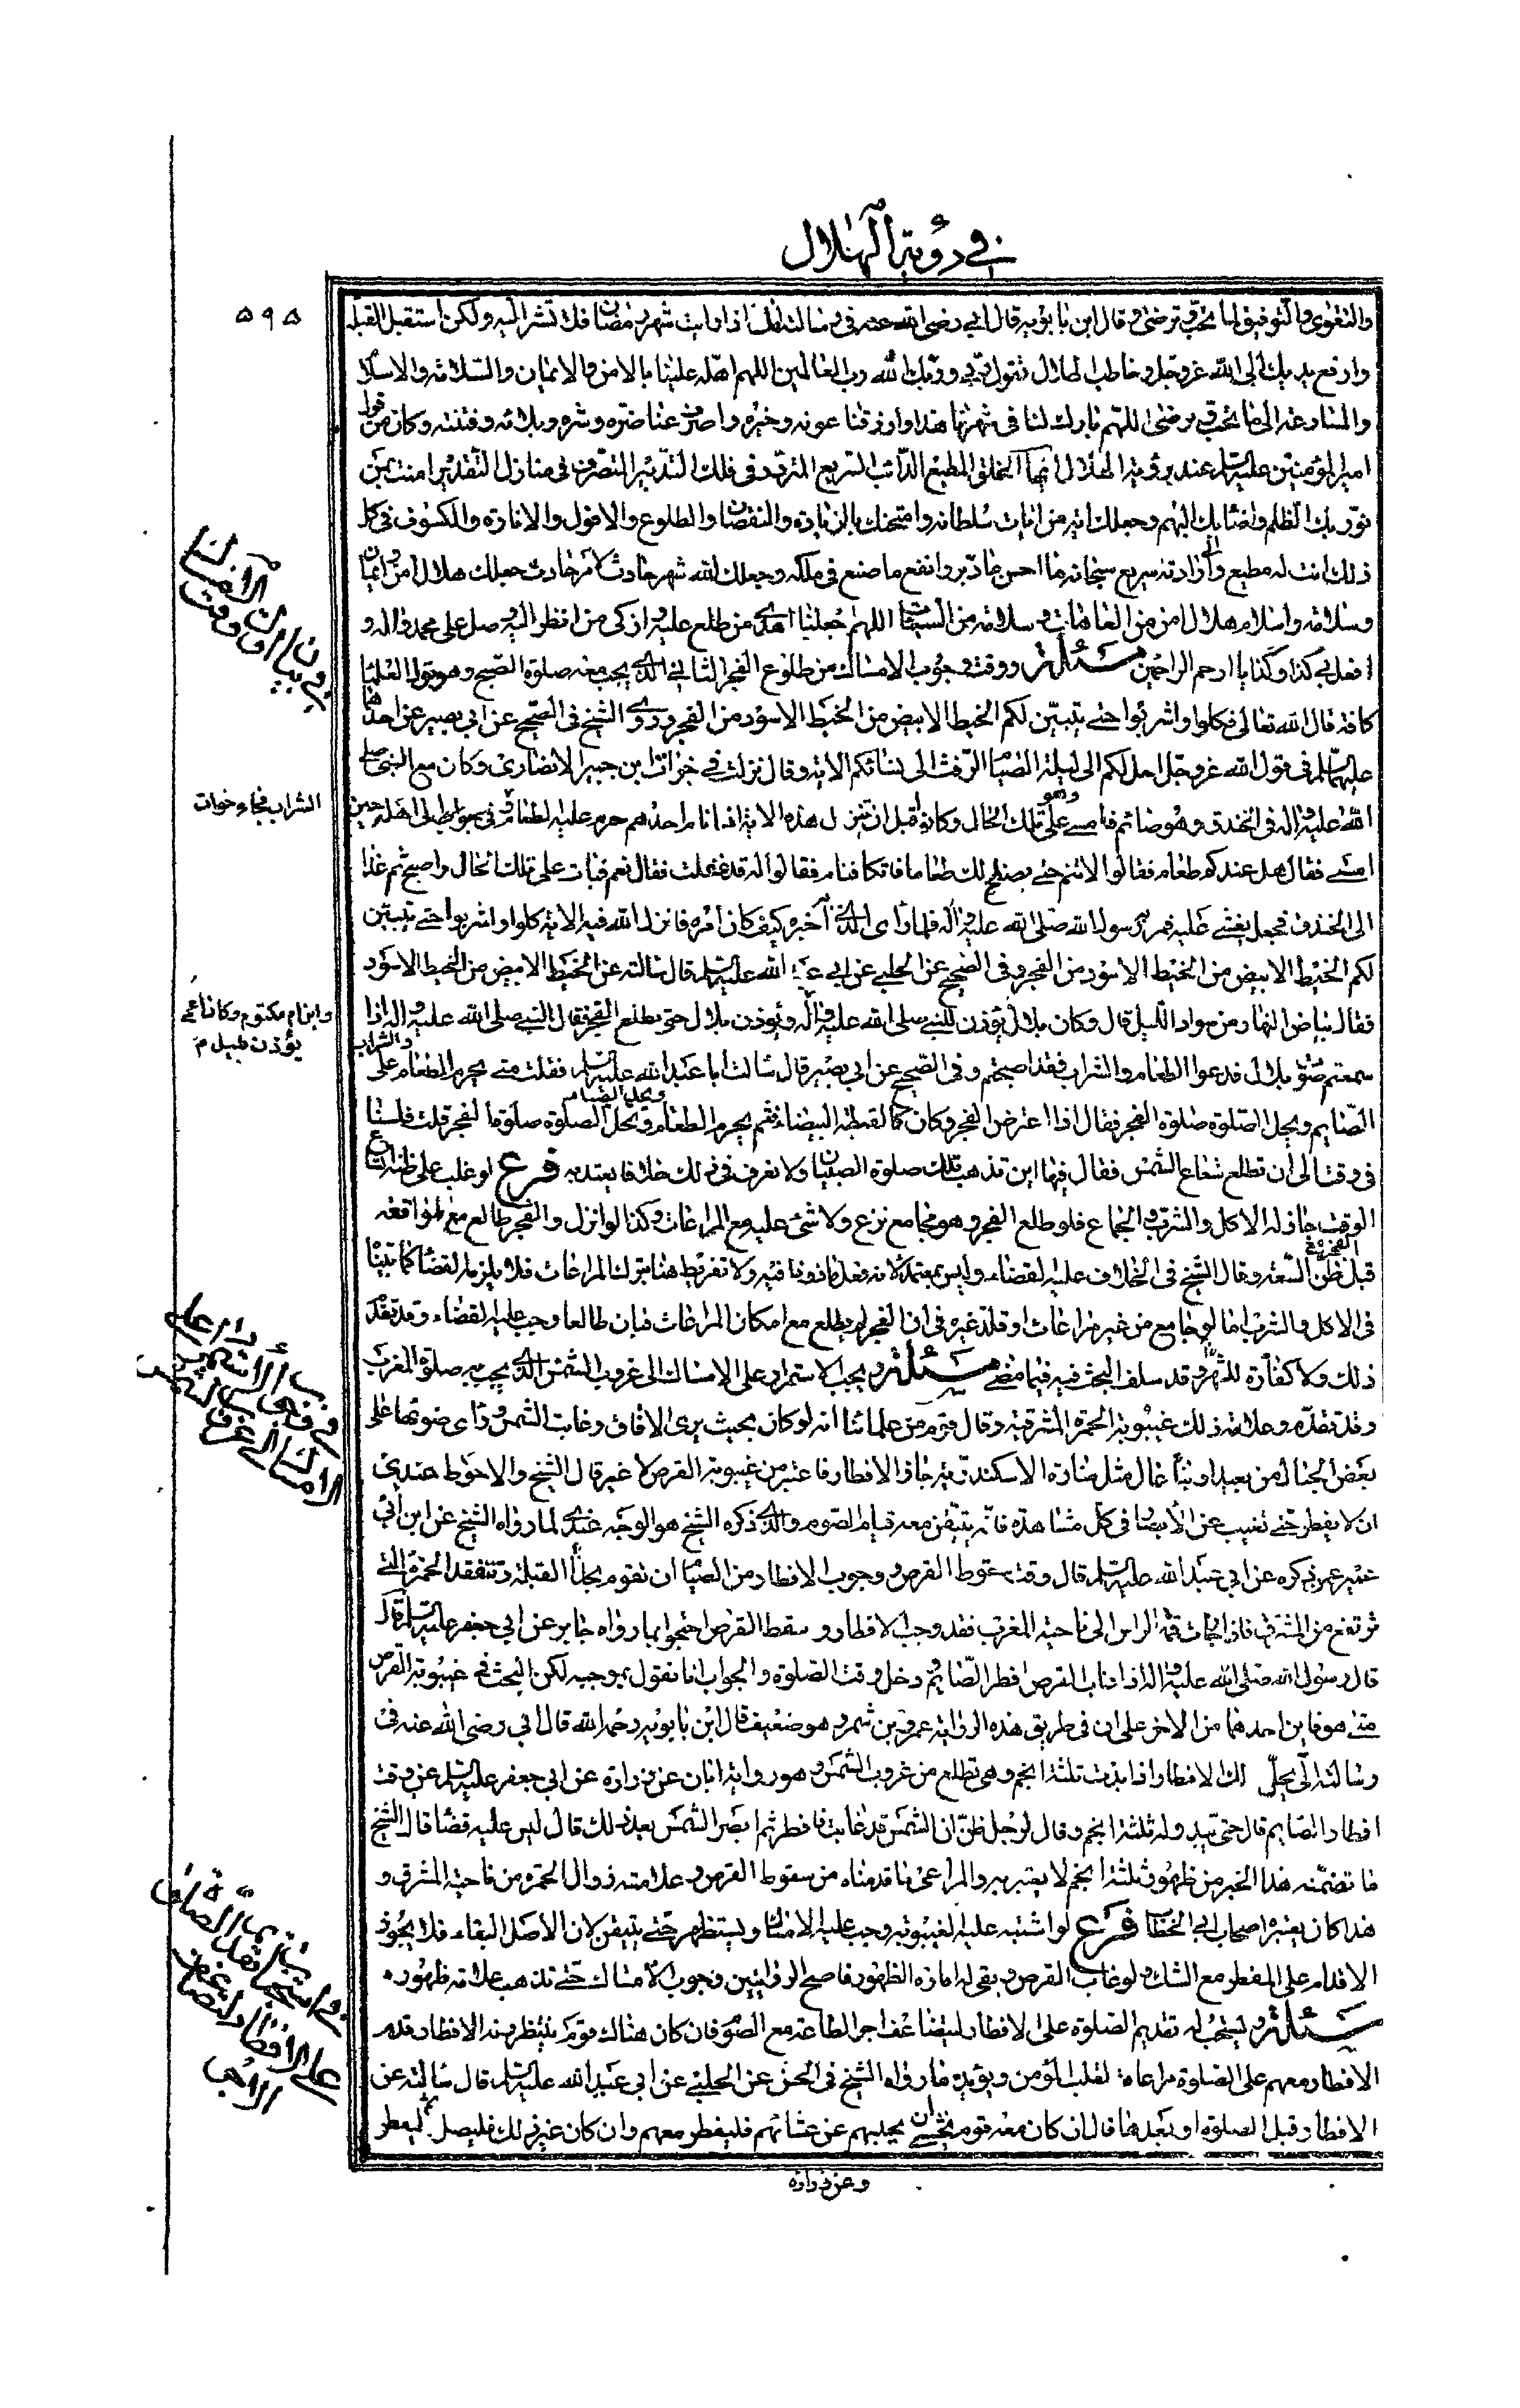 في رؤية الهلال
٥٩٥
والتقوى والتوفيق لما تحب وترضى وقال ابن بابويه قال ابي رضى الله عنه في رسالته الى اذا رايت شهر رمضان فلا تشر اليه ولكن استقبل القبلة
وارفع يديك الى الله عز وجل وخاطب الهلال تقول ربي وربك الله رب العالمين اللهم اهله علينا بالامن والايمان والسلامة والاسلام
والمسارعة الى ما تحب وترضى اللهم بارك لنا في شهرنا هذا وارزقنا عونه وخيره واصرف عنا ضره وشره وبلائه وفتنته وكان من قول
امير المؤمنين عليه السلم عند رؤية الهلال ايها الخلق المطيع الدائب السريع المتردد في فلك التدبير المتصرف في منازل التقدير امنت بمن
نور بك الظلم واضاء بك البهم وجعلك اية من ايات سلطانه وامتحنك بالزيادة والنقصان والطلوع والافول والانارة والكسوف في كل
ذلك انت له مطيع والى ارادته سريع سبحانه ما احسن ما دبر واتقن ما صنع في ملكه وجعلك الله شهر حادث لامر حادث جعلك هلال امن وايمان
وسلامة واسلام هلال امن من العاهات وسلامة من السيئات اللهم اجعلنا اهدى من طلع عليه وازكى من نظر اليه وصل على محمد واله و
افعل بي كذا وكذا يا ارحم الراحمين مسئلة ووقت وجوب الامساك من طلوع الفجر الثاني الذي يجب معه صلوة الصبح وهو قول العلماء
كافة قال الله تعالى فكلوا واشربوا حتى يتبين لكم الخيط الابيض من الخيط الاسود من الفجر وروى الشيخ في الصحيح عن ابي بصير عن احدهما
عليهما السلم في قول الله عز وجل احل لكم ليلة الصيام الرفث الى نسائكم الاية وقال نزلت في خوات ابن جبير الانصارى وكان مع النبي صلى
الله عليه واله في الخندق وهو صائم فامسى وهو على تلك الحال وكانوا قبل ان تنزل هذه الاية اذا نام احدهم حرم عليه الطعام والشراب فجاء خوات الى اهله حين
امسى فقال هل عندكم طعام فقالوا لا تنم حتى يصنع لك طعاما فاتكا فنام فقالوا له قد فعلت فقال نعم فبات على تلك الحال واصبح ثم غدا
الى الخندق فجعل يغشى عليه فمر به رسول الله صلى الله عليه واله فلما راى الذي به اخبره كيف كان امره فانزل الله فيه الاية كلوا واشربوا حتى يتبين
لكم الخيط الابيض من الخيط الاسود من الفجر وفي الصحيح عن الحلبي عن ابي عبد الله عليه السلم قال سالته عن الخيط الابيض من الخيط الاسود
فقال بياض النهار من سواد الليل قال وكان بلال يؤذن للنبي صلى الله عليه واله ويؤذن بلال حتى يطلع الفجر فقال النبي صلى الله عليه واله اذا
وابن ام مكتوم وكان اعمى
يؤذن بليل م
سمعتم صوت بلال فدعوا الطعام والشراب فقد اصبحتم وفي الصحيح عن ابي بصير قال سالت ابا عبد الله عليه السلم فقلت متى يحرم الطعام والشراب على
الصايم ويحل الصلوة صلوة الفجر فقال اذا اعترض الفجر وكان كالقبطية البيضاء فثم يحرم الطعام ويحل الصيام ويحل الصلوة صلوة الفجر قلت فلسنا
في وقت الى ان تطلع شعاع الشمس فقال فيها اين تذهب تلك صلوة الصبيان ولا نعرف في ذلك خلافا يعتد به فرع لو غلب على ظنه اتساع
الوقت جاز له الاكل والشرب والجماع فلو طلع الفجر وهو مجامع نزع ولا شئ عليه مع المراعات وكذا لو انزل والفجر طالع مع المواقعة
قبل الفجر وظن السعة وقال الشيخ في الخلاف عليه القضاء وليس بمعتمد لانه فعل ماذونا فيه ولا تفريط هنا بترك المراعات فلا يلزمه القضاء كما بينا
في الاكل والشرب اما لو جامع من غير مراعات او قلد غيره في ان الفجر لم يطلع مع امكان المراعات فبان طالعا وجب عليه القضاء وقد تقدم
ذلك ولا كفارة للشهر وقد سلف البحث فيه فيما مضى مسئلة ويجب الاستمرار على الامساك الى غروب الشمس الذي يجب به صلوة المغرب
وقد تقدم وعلامة ذلك غيبوبة الحمرة المشرقية وقال قوم من علمائنا انه لو كان بحيث يرى الافاق وغابت الشمس وراى ضوئها على
بعض الجبال من بعيد او بناء عال مثل منارة الاسكندرية جاز الافطار فاعتبر من غيبوبة القرص لا غير قال الشيخ والاحوط عندي
ان لا يفطر حتى تغيب عن الابصار في كل مشاهدة فانه يتيقن معه قيام الصوم والذي ذكره الشيخ هو الوجه عندي لما رواه الشيخ عن ابن ابي
عمير عمن ذكره عن ابي عبد الله عليه السلم قال وقت سقوط القرص ووجوب الافطار من الصيام ان تقوم بحذاء القبلة وتتفقد الحمرة التي
ترتفع من المشرق فاذا جازت قمة الراس الى ناحية المغرب فقد وجب الافطار وسقط القرص احتجوا بما رواه جابر عن ابي جعفر عليه السلم قال
قال رسول الله صلى الله عليه واله اذا غاب القرص افطر الصايم ودخل وقت الصلوة والجواب انا نقول بموجبه لكن البحث في غيبوبة القرص
متى هو فاين احدهما من الاخر على ان في طريق هذه الرواية عمرو بن شمر وهو ضعيف قال ابن بابويه رحمه الله قال ابي رضى الله عنه في
رسالته الى يحل لك الافطار اذا بدت ثلثة انجم وهي تطلع من غروب الشمس وهو رواية ابان عن زرارة عن ابي جعفر عليه السلم عن وقت
افطار الصايم قال حتى تبدو له ثلثة انجم وقال لرجل ظن ان الشمس قد غابت فافطر ثم ابصر الشمس بعد ذلك قال ليس عليه قضاء قال الشيخ
ما تضمنه هذا الخبر من ظهور ثلثة انجم لا يعتبر به والمراعى ما قدمناه من سقوط القرص وعلامته زوال الحمرة من ناحية المشرق و
هذا كان يعتبره اصحاب ابي الخطاب فرع لو اشتبه عليه الغيبوبة وجب عليه الامساك ويستظهر حتى يتيقن لان الاصل البقاء فلا يجوز
الاقدام على المفطر مع الشك ولو غاب القرص وبقى له امارة الظهور فاصح الروايتين وجوب الامساك حتى تذهب علامة ظهوره
مسئلة ويستحب له تقديم الصلوة على الافطار ليتضاعف اجر الطاعة مع الصوم فان كان هناك قوم ينتظرونه الافطار قدم
الافطار معهم على الصلوة مراعاة لقلب المؤمن ويؤيده ما رواه الشيخ في الحسن عن الحلبي عن ابي عبد الله عليه السلم قال سالته عن
الافطار قبل الصلوة او بعدها قال ان كان معه قوم يخشى ان يحبسهم عن عشائهم فليفطر معهم وان كان غير ذلك فليصل ثم ليفطر
وعن زرارة